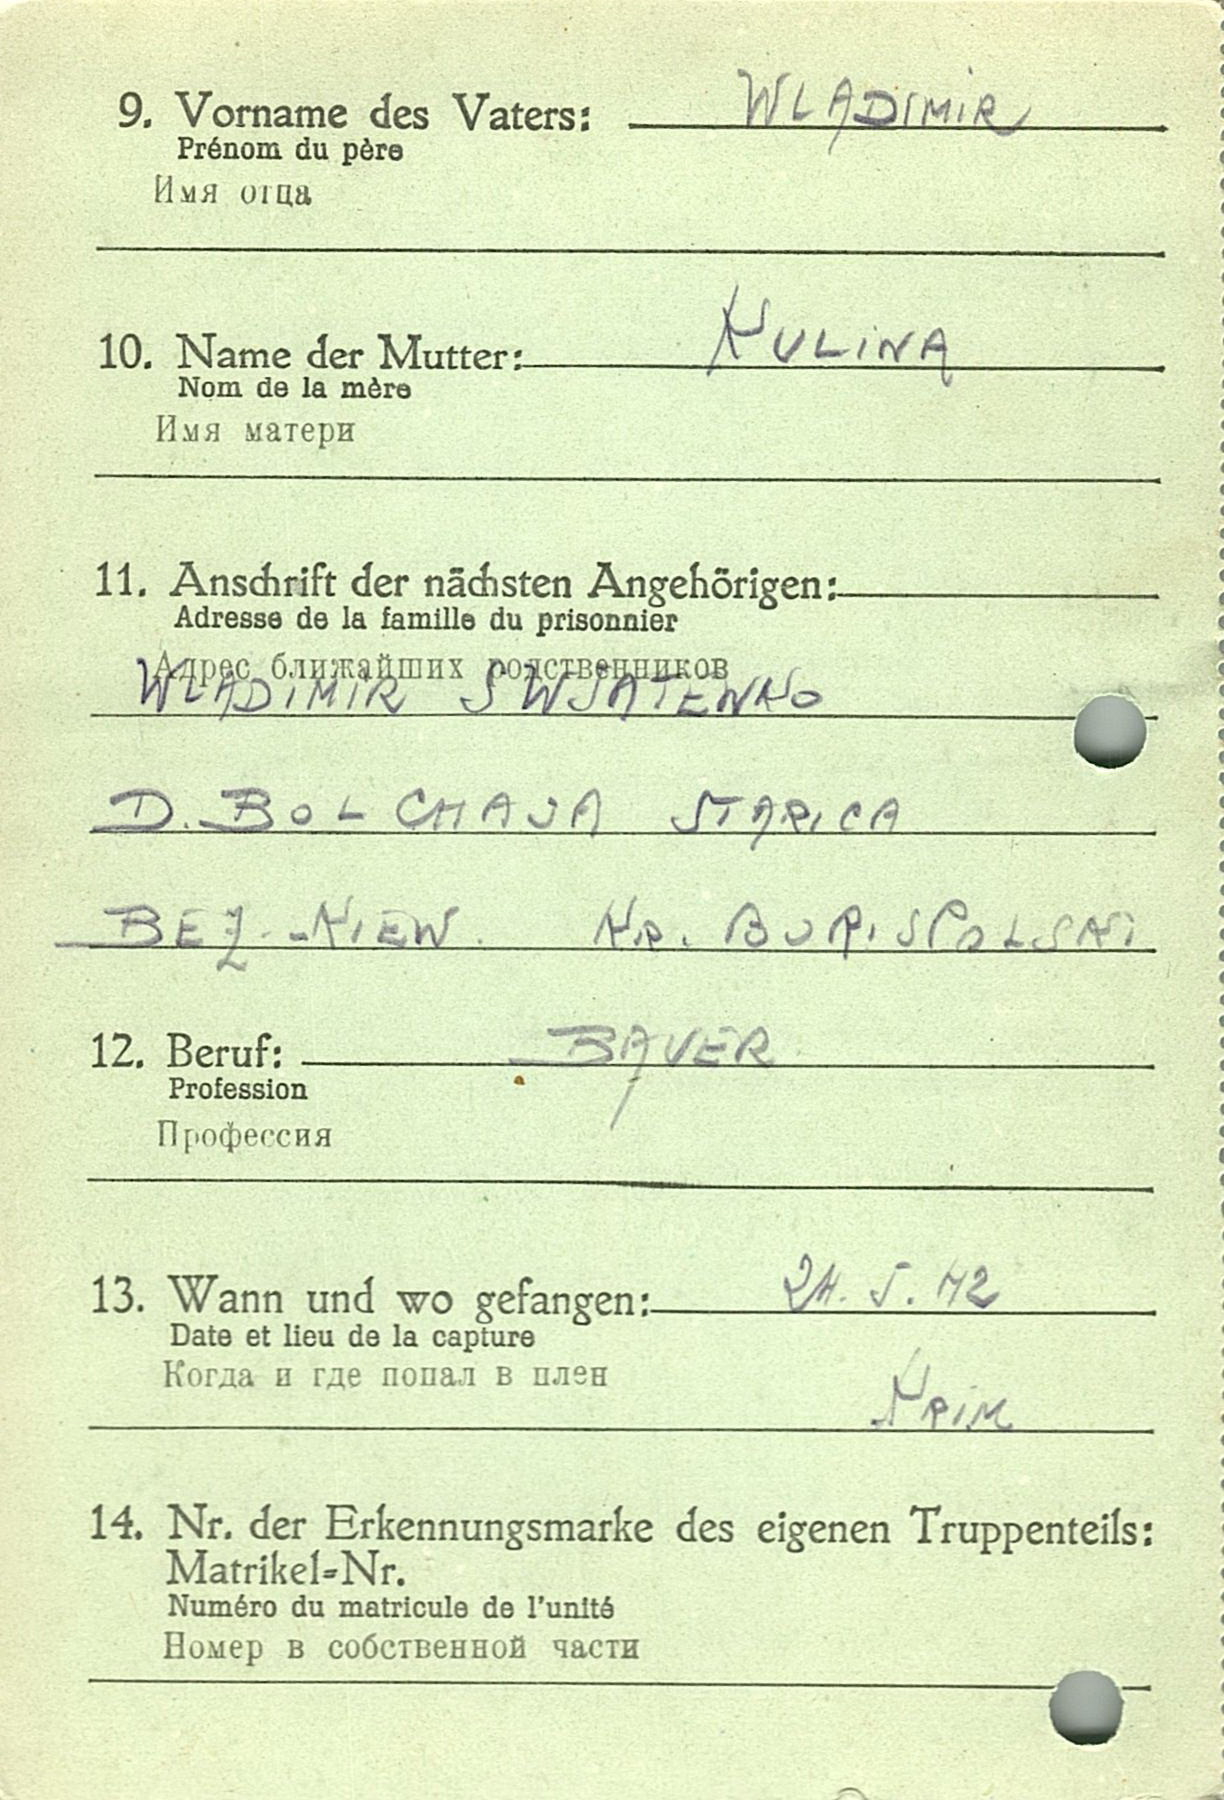 9. Vorname des Vaters: WLADIMIR
Prénom du père
Имя отца
10. Name der Mutter: KULINA
Nom de la mère
Имя матери
11. Anschrift der nächsten Angehörigen:
Adresse de la famille du prisonnier
Адрес ближайших родственников
WLADIMIR SWJATENKO
D. BOLCHAJA STARICA
BEZ.-KIEW. KR. BORISPOLSKI
12. Beruf: BAUER
Profession
Профессия
13. Wann und wo gefangen: 24. 5. 42
Date et lieu de la capture
Когда и где попал в плен
KRIM
14. Nr. der Erkennungsmarke des eigenen Truppenteils:
Matrikel-Nr.
Numéro du matricule de l'unité
Номер в собственной части